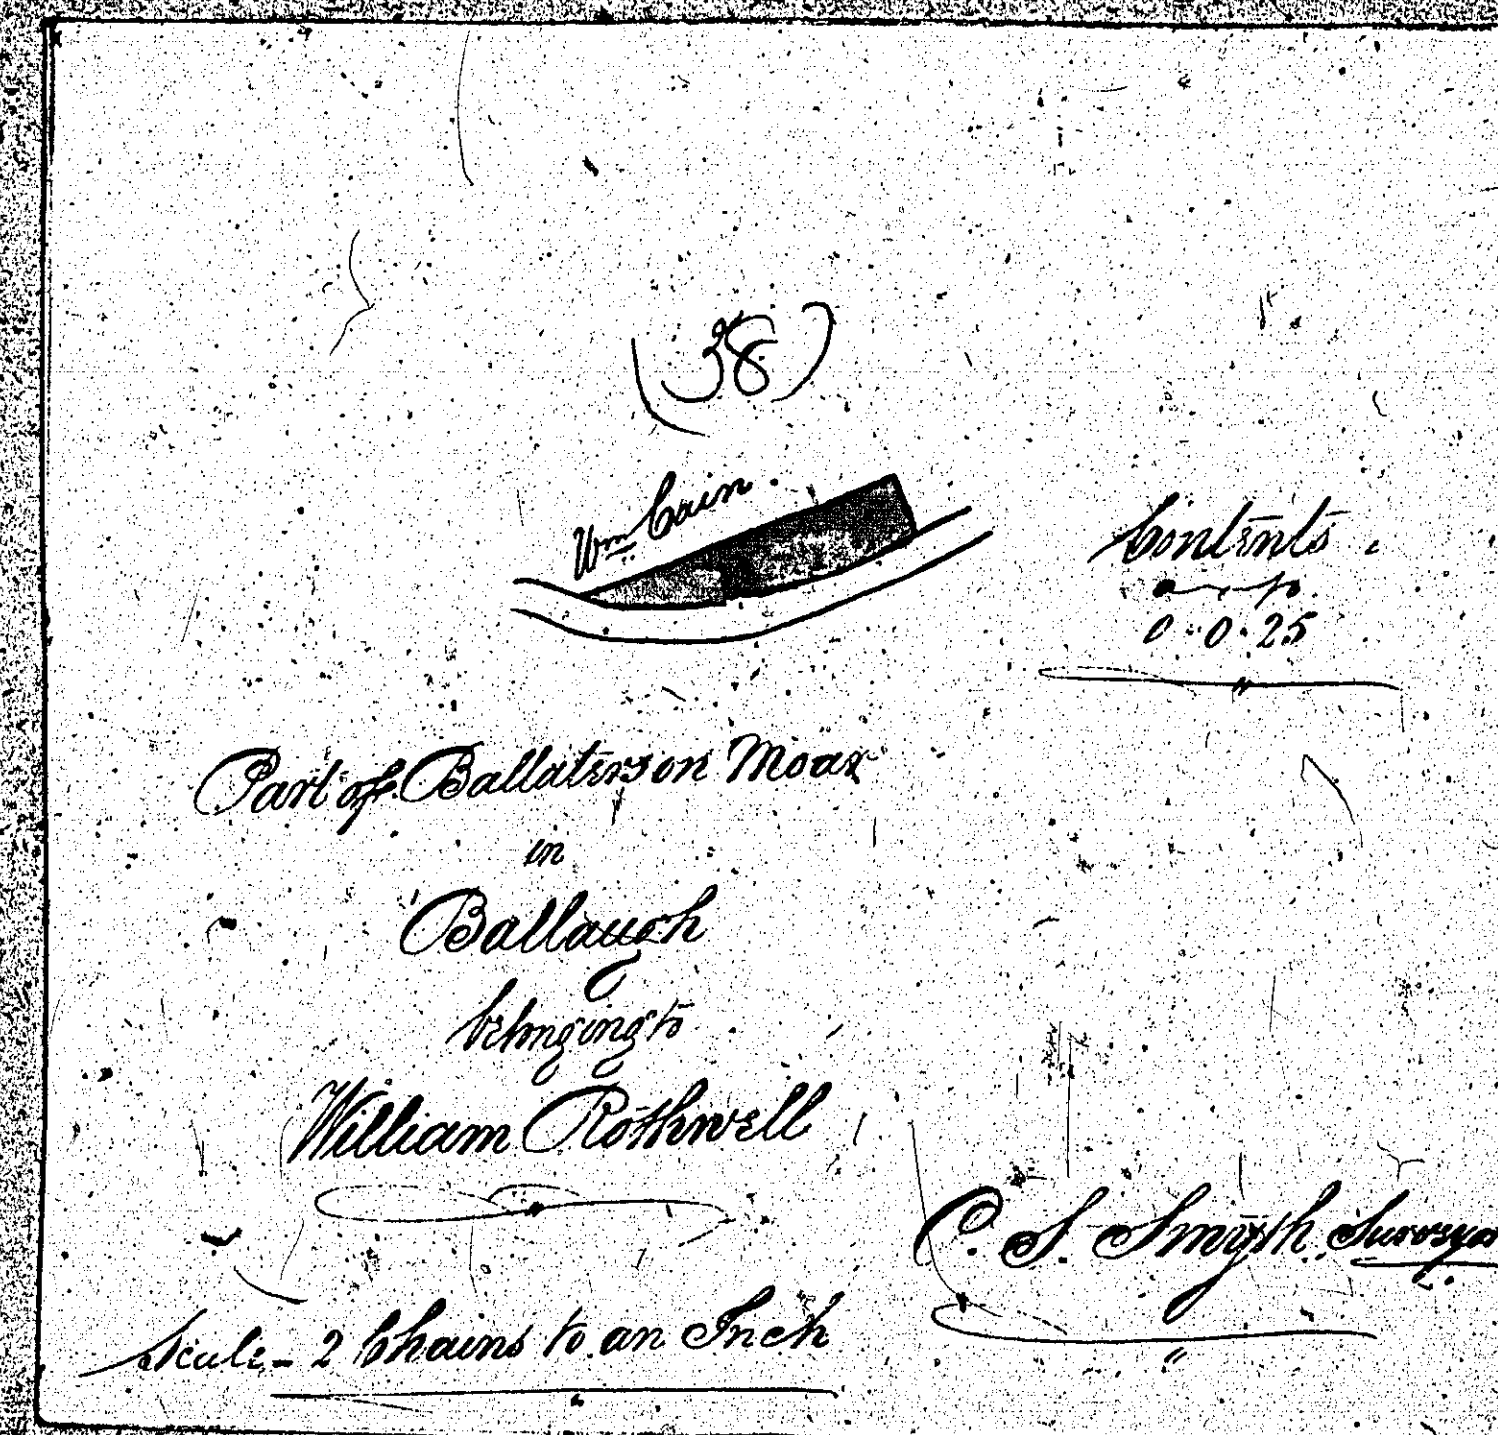 (38)
Wm Cain.
Contents.
a r p.
0·0·25
Part of Ballaterson Moar
in
Ballaugh
belonging to
William Rothwell
C. S. Smyth Surveyor
Scale - 2 Chains to an Inch